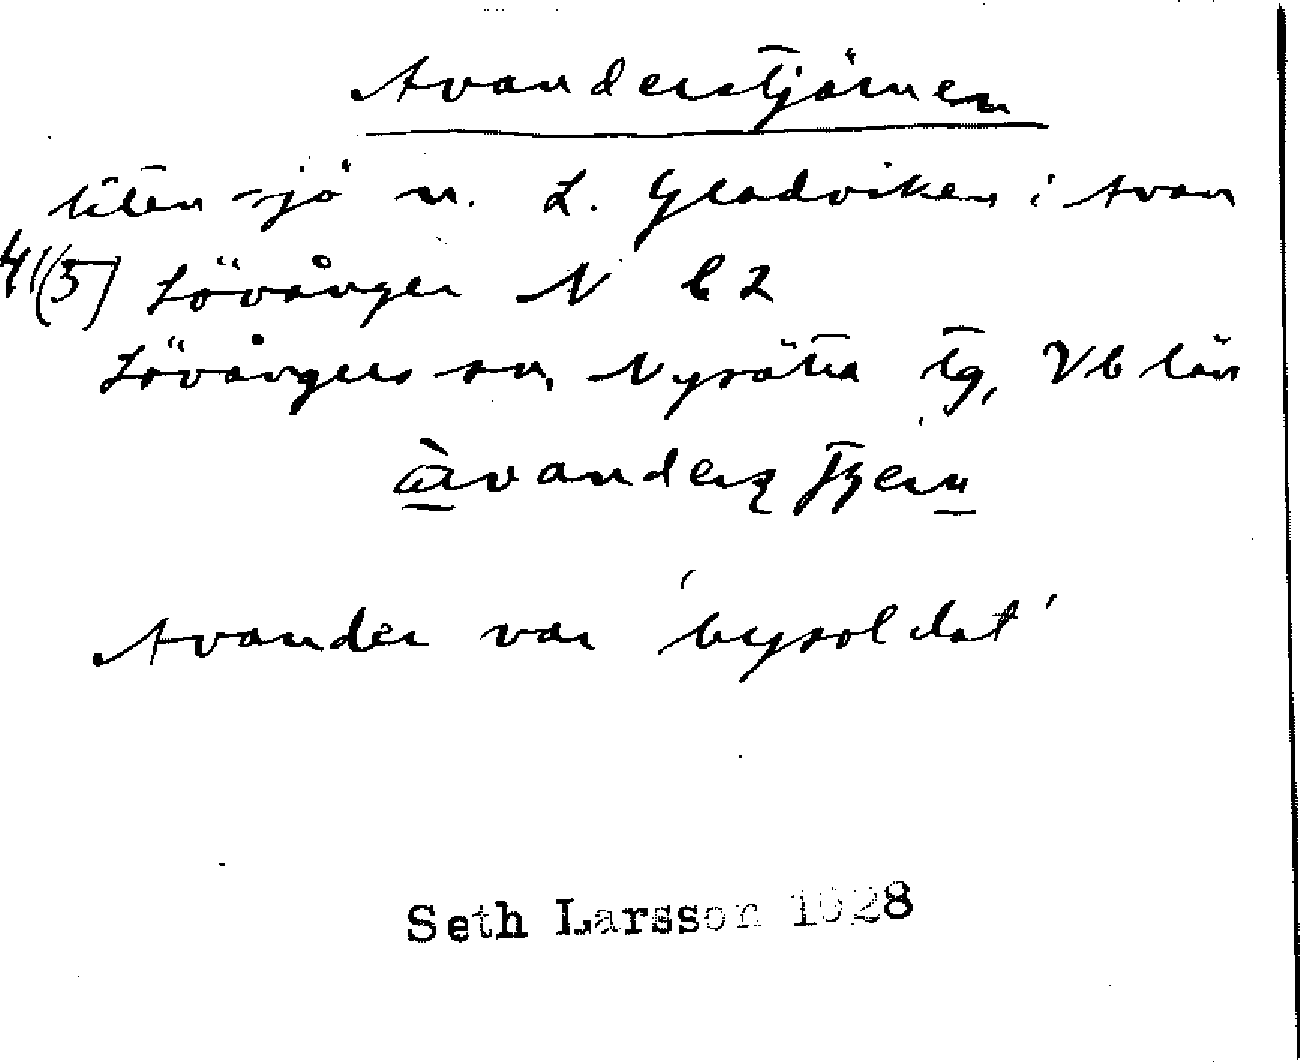 Avanderstjärnen
liten sjö n. L. Gladviken i Avan
41(5) Lövånger N b 2
Lövångers sn, Nysätra tg, Vb län
Avander var 'bysoldat'
Seth Larsson 1928